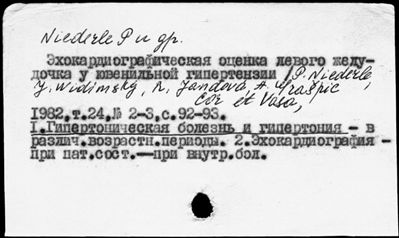 Niederle P и др.
Эхокардиографическая оценка левого желу-
дочка у ювенильной гипертензии /P. Niederle,
J. Widimský, R. Jandová, A. Grašpic
Cor et Vasa,
1982,т.24,№ 2-3,с.92-93.
1.Гипертоническая болезнь и гипертония - в
различ.возрастн.периоды. 2.Эхокардиография -
при пат.сост.—при внутр.бол.